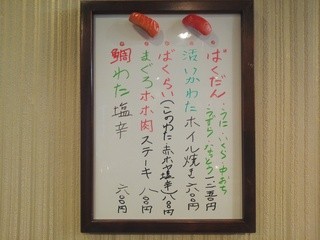 ばくだん ・うに・いくら・中おち・うずら・なっとう 一、二百円
活いかわた ホイル焼き 六〇〇円
ばくらい (このわた 赤ホヤ塩辛) 八〇〇円
まぐろホホ肉 ステーキ 八〇〇円
鯛わた 塩辛 六〇〇円